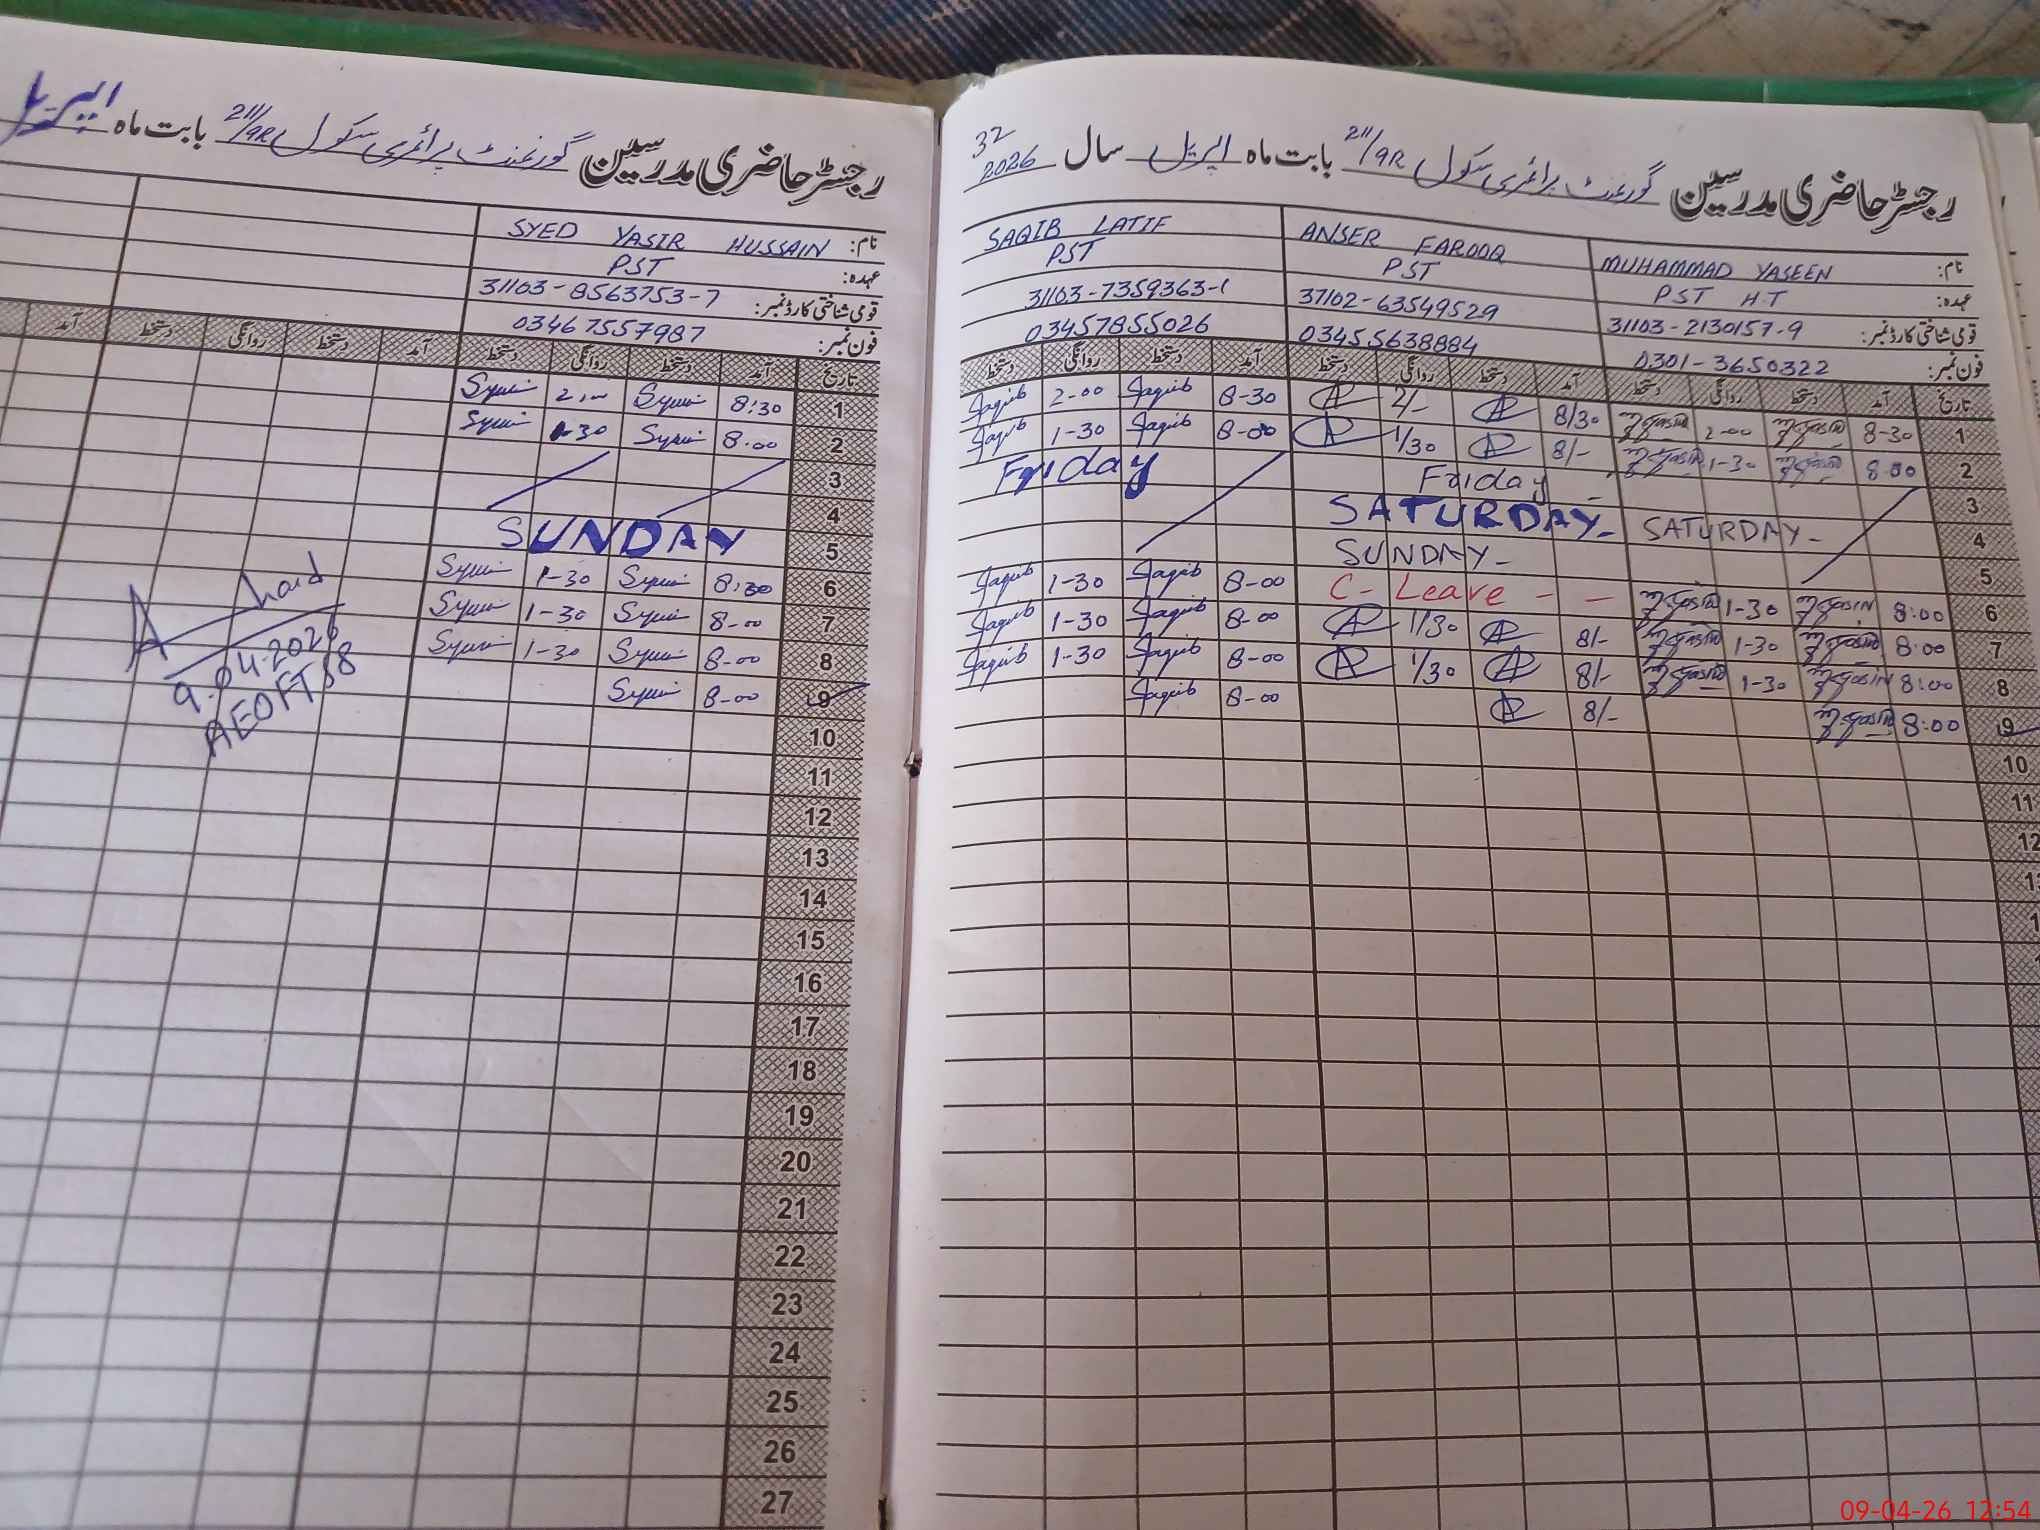 رجسٹر حاضری مدرسین گورنمنٹ پرائمری سکول 211/9R بابت ماہ اپریل
نام: SYED YASIR HUSSAIN
عہدہ: PST
قومی شناختی کارڈ نمبر: 31103-8563753-7
فون نمبر: 03467557987
تاریخ آمد دستخط روانگی دستخط آمد دستخط روانگی دستخط آمد
1 8:30 2:00
2 8:00 1-30
3
4
5 SUNDAY
6 8:30 1-30
7 8-00 1-30
8 8-00 1-30
9 8-00
10
11
12
13
14
15
16
17
18
19
20
21
22
23
24
25
26
27
9.04.2026
رجسٹر حاضری مدرسین گورنمنٹ پرائمری سکول 211/9R بابت ماہ اپریل سال 2026
32
نام: MUHAMMAD YASEEN ANSER FAROOQ SAQIB LATIF
عہدہ: PST H.T PST PST
قومی شناختی کارڈ نمبر: 31103-2130157-9 37102-63549529 31103-7359363-1
فون نمبر: 0301-3650322 03455638884 03457855026
تاریخ آمد دستخط روانگی دستخط آمد دستخط روانگی دستخط آمد دستخط روانگی دستخط
1 8-30 M.Yasin 2-00 M.Yasin 8/30 2/- 8-30 Saqib 2-00 Saqib
2 8:00 M.Yasin 1-30 M.Yasin 8/- 1/30 8-00 Saqib 1-30 Saqib
3 Friday Friday
4 SATURDAY- SATURDAY-
5 SUNDAY-
6 8:00 M.YasiN 1-30 M.Yasin C-Leave - - 8-00 Saqib 1-30 Saqib
7 8:00 M.Yasin 1-30 M.Yasin 8/- 1/30 8-00 Saqib 1-30 Saqib
8 8:00 M.YasiN 1-30 M.Yasin 8/- 1/30 8-00 Saqib 1-30 Saqib
9 8:00 M.Yasin 8/- 8-00 Saqib
10
11
12
09-04-26 12:54